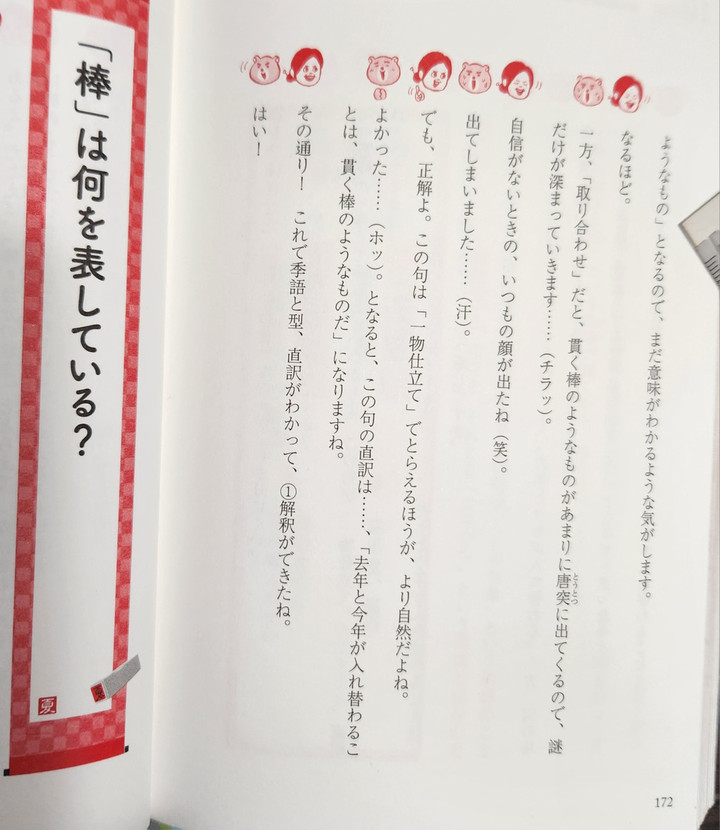 ようなもの」となるので、まだ意味がわかるような気がします。
なるほど。
一方、「取り合わせ」だと、貫く棒のようなものがあまりに唐突に出てくるので、謎
とうとつ
だけが深まっていきます……（チラッ）。
自信がないときの、いつもの顔が出たね（笑）。
出てしまいました……（汗）。
でも、正解よ。この句は「一物仕立て」でとらえるほうが、より自然だよね。
よかった……（ホッ）。となると、この句の直訳は……、「去年と今年が入れ替わるこ
とは、貫く棒のようなものだ」になりますね。
その通り！　これで季語と型、直訳がわかって、①解釈ができたね。
はい！
172
「棒」は何を表している？
夏